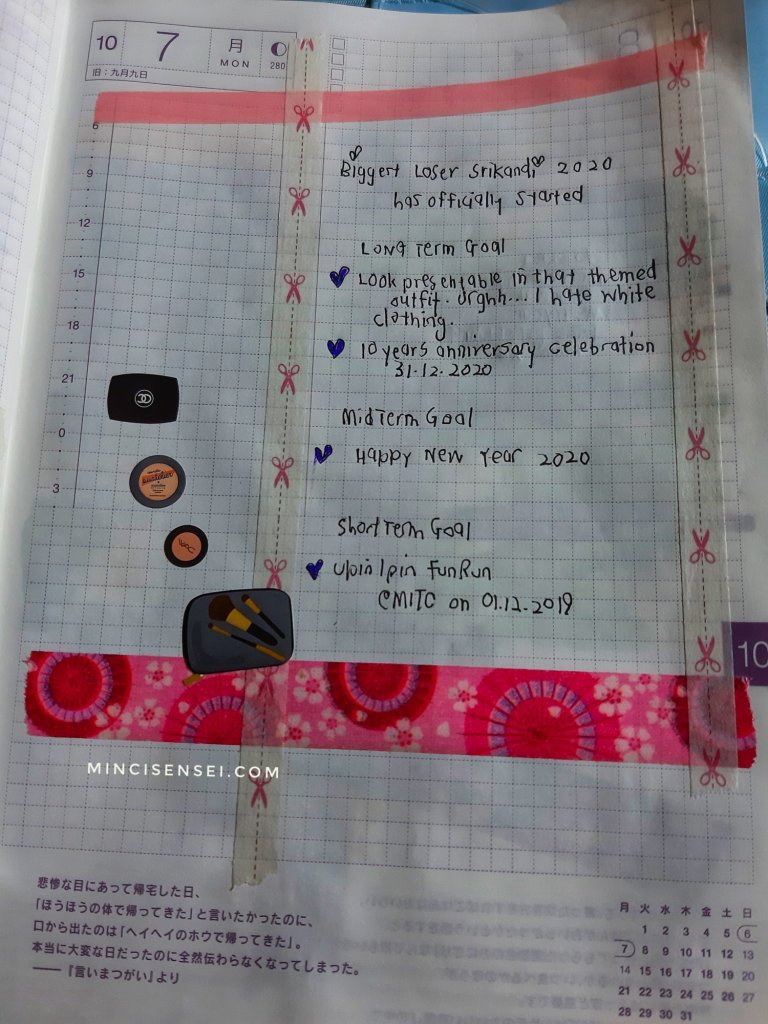 10 7 月 MON 280
旧：九月九日
6
9
12
15
18
21
0
3
Biggest Loser Srikandi 2020
has officially started
Long Term Goal
Look presentable in that themed
outfit. Urghh... I hate white
clothing.
10 years anniversary celebration
31.12.2020
Mid Term Goal
Happy New Year 2020
Short Term Goal
Upin Ipin Fun Run
@MITC on 01.12.2019
10
MINCISENSEI.COM
悲惨な目にあって帰宅した日、
「ほうほうの体で帰ってきた」と言いたかったのに、
口から出たのは「ヘイヘイのホウで帰ってきた」。
本当に大変な日だったのに全然伝わらなくなってしまった。
――『言いまつがい』より
月 火 水 木 金 土 日
1 2 3 4 5 6
7 8 9 10 11 12 13
14 15 16 17 18 19 20
21 22 23 24 25 26 27
28 29 30 31